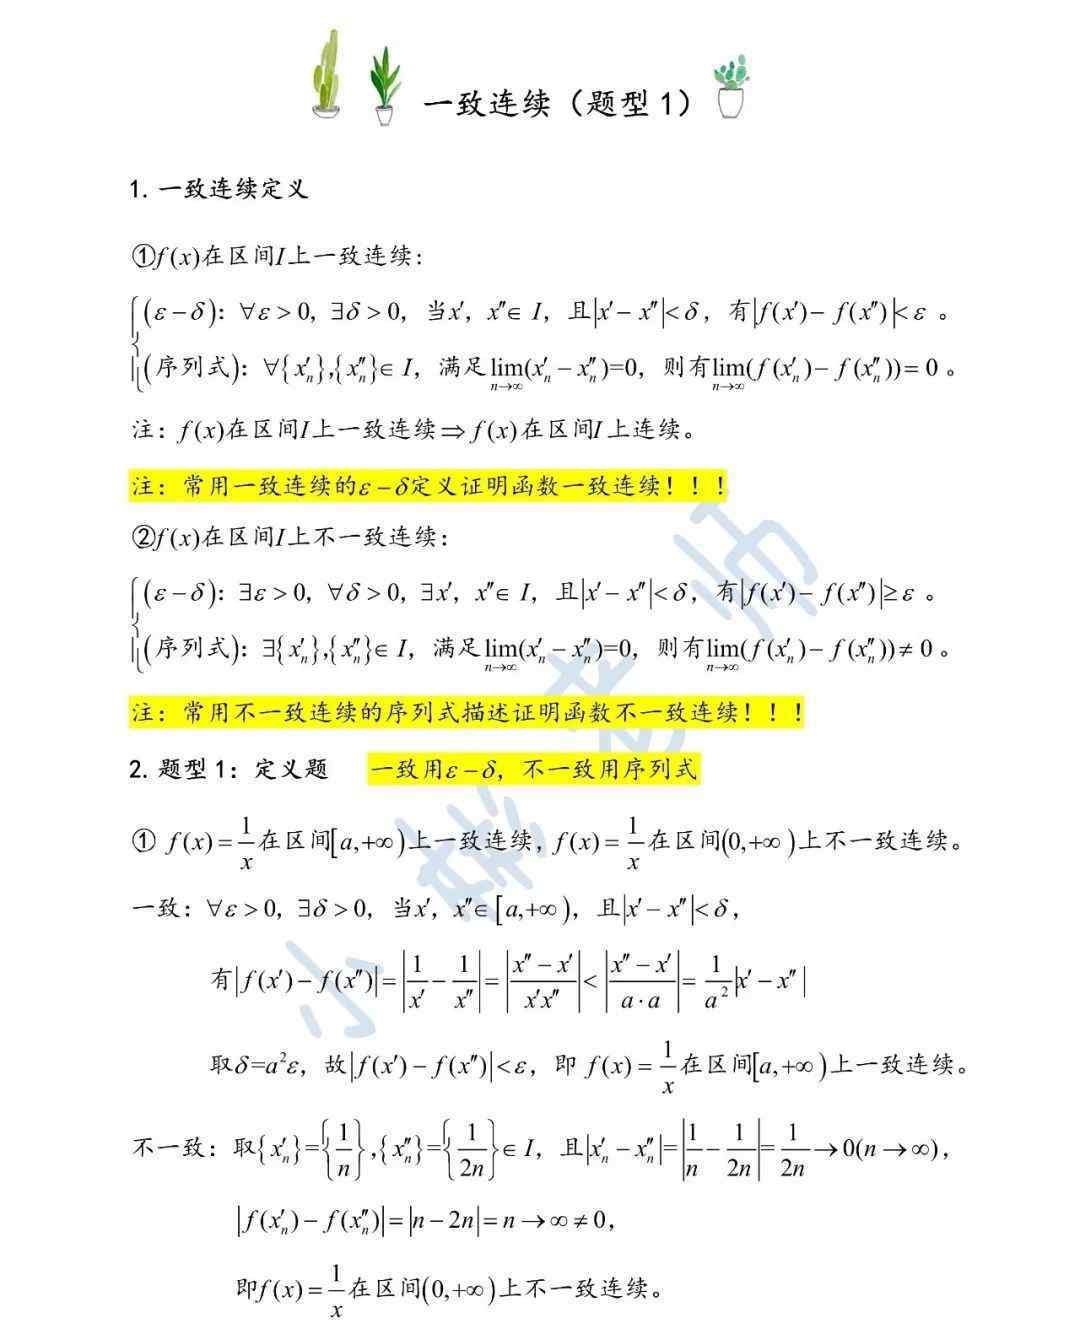 一致连续（题型 1）
1. 一致连续定义
①f(x)在区间I上一致连续：
(ε-δ)：∀ε>0, ∃δ>0, 当x′, x″∈ I, 且|x′-x″|<δ, 有|f(x′)-f(x″)|<ε。
(序列式)：∀{x′ₙ},{x″ₙ}∈ I, 满足lim(x′ₙ-x″ₙ)=0, 则有lim(f(x′ₙ)-f(x″ₙ))=0。
n→∞ n→∞
注：f(x)在区间I上一致连续⇒f(x)在区间I上连续。
注：常用一致连续的ε-δ定义证明函数一致连续！！！
②f(x)在区间I上不一致连续：
(ε-δ)：∃ε>0, ∀δ>0, ∃x′, x″∈ I, 且|x′-x″|<δ, 有|f(x′)-f(x″)|≥ε。
(序列式)：∃{x′ₙ},{x″ₙ}∈ I, 满足lim(x′ₙ-x″ₙ)=0, 则有lim(f(x′ₙ)-f(x″ₙ))≠0。
n→∞ n→∞
注：常用不一致连续的序列式描述证明函数不一致连续！！！
2. 题型 1：定义题 一致用ε-δ, 不一致用序列式
① f(x)=1/x在区间[a,+∞)上一致连续, f(x)=1/x在区间(0,+∞)上不一致连续。
一致：∀ε>0, ∃δ>0, 当x′, x″∈[a,+∞), 且|x′-x″|<δ,
有|f(x′)-f(x″)|=|1/x′-1/x″|=|(x″-x′)/(x′x″)|<|(x″-x′)/(a·a)|=1/a²|x′-x″|
取δ=a²ε, 故|f(x′)-f(x″)|<ε, 即 f(x)=1/x在区间[a,+∞)上一致连续。
不一致：取{x′ₙ}={1/n},{x″ₙ}={1/2n}∈ I, 且|x′ₙ-x″ₙ|=|1/n-1/2n|=1/2n→0(n→∞),
|f(x′ₙ)-f(x″ₙ)|=|n-2n|=n→∞≠0,
即f(x)=1/x在区间(0,+∞)上不一致连续。